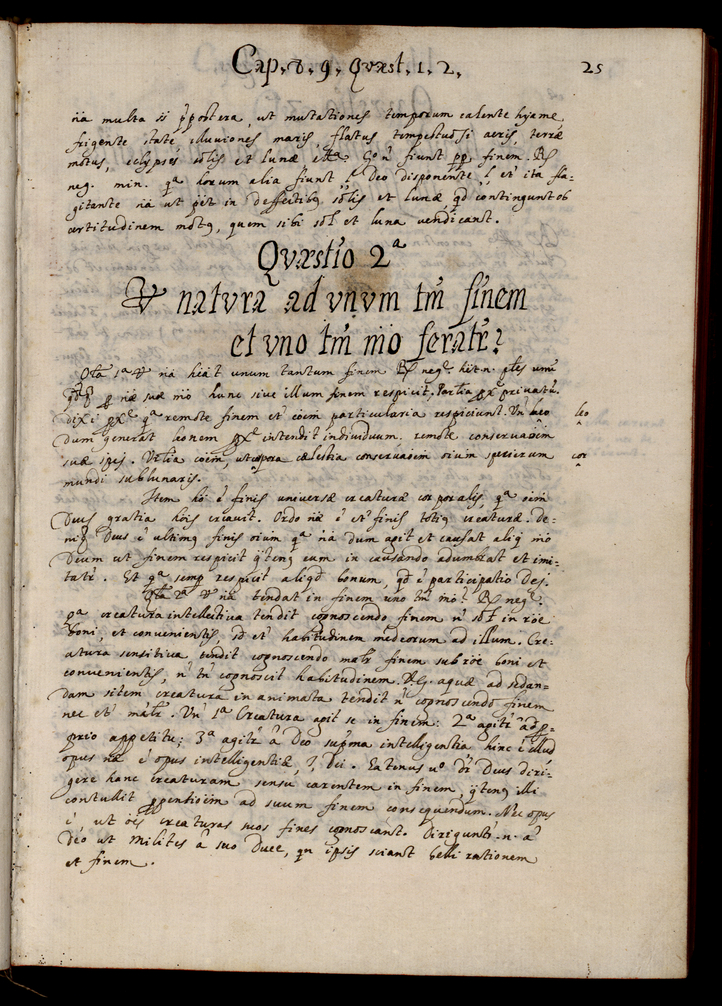 Cap. 8. 9. Quæst. 1. 2. 25
na multa st ppostera, ut mutationes temporum calente hyeme,
frigente state, illuviones maris, flatus tempestuosi aeris, terræ
motus, eclypses solis et lunæ &ª. Go n fiunt pp finem. R/
neg. min. qª horum alia fiunt Deo disponente, et ita fla-
gitante nã ut in deffectibq solis et lunæ, qd contingunt ob
certitudinem motq, quem sibi sol et luna vendicant.
Qvæstio 2ª
V natvra ad vnvm tm finem
et vno tm mo feratr?
1ª V nã heat unum tantum finem R/ negr.
p næ suæ mo hunc sive illum finem respicit.
dixi pxe qª remote finem et coem particularia respiciunt. Vn leo leo
dum generat leonem pxe intendit individuum. remote conservaoem
suæ spej. coem, ut opera cælestia conservaoem oium specierum cor
mundi sublunaris.
Item ho e finis universæ creaturæ corporalis, qª oim
Deus gratia hois creavit. Ordo næ e et finis totiq creaturæ. De-
niq Deus e ultimq finis oium qª nã dum agit et causat aliq mo
Deum ut finem respicit qtenq eum in causando adumbrat et imi-
tatr. Et qª semp respicit aliqd bonum, qd e participatio Dej.
2ª V nã tendat in finem uno tm mo? R/ negr.
qª creatura intellectiva tendit cognoscendo finem n sol in roe
boni, et convenientis, sd et habitudinem mediorum ad illum. Cre-
atura sensitiva tendit cognoscendo matr finem sub roe boni et
convenientis, n tn cognoscit habitudinem V.G. aquæ ad sedan-
dam sitem creatura inanimata tendit n cognoscendo finem
nec et matr. Vn 1ª Creatura agit se in finem: 2ª agitr a pp-
prio appetitu; 3ª agitr a Deo suprma intelligentia hinc e illud
opus næ e opus intelligentiæ, Dei. Eatenus vo dr Deus diri-
gere hanc creaturam sensu carentem in finem, qtenq illi
contullit ppensioem ad suum finem consequendum. Nec opus
e, ut oes creaturas suos fines cognoscant. Diriguntr .n. a
Deo ut Milites a suo Duce, qn ipsis sciant belli rationem
et finem.